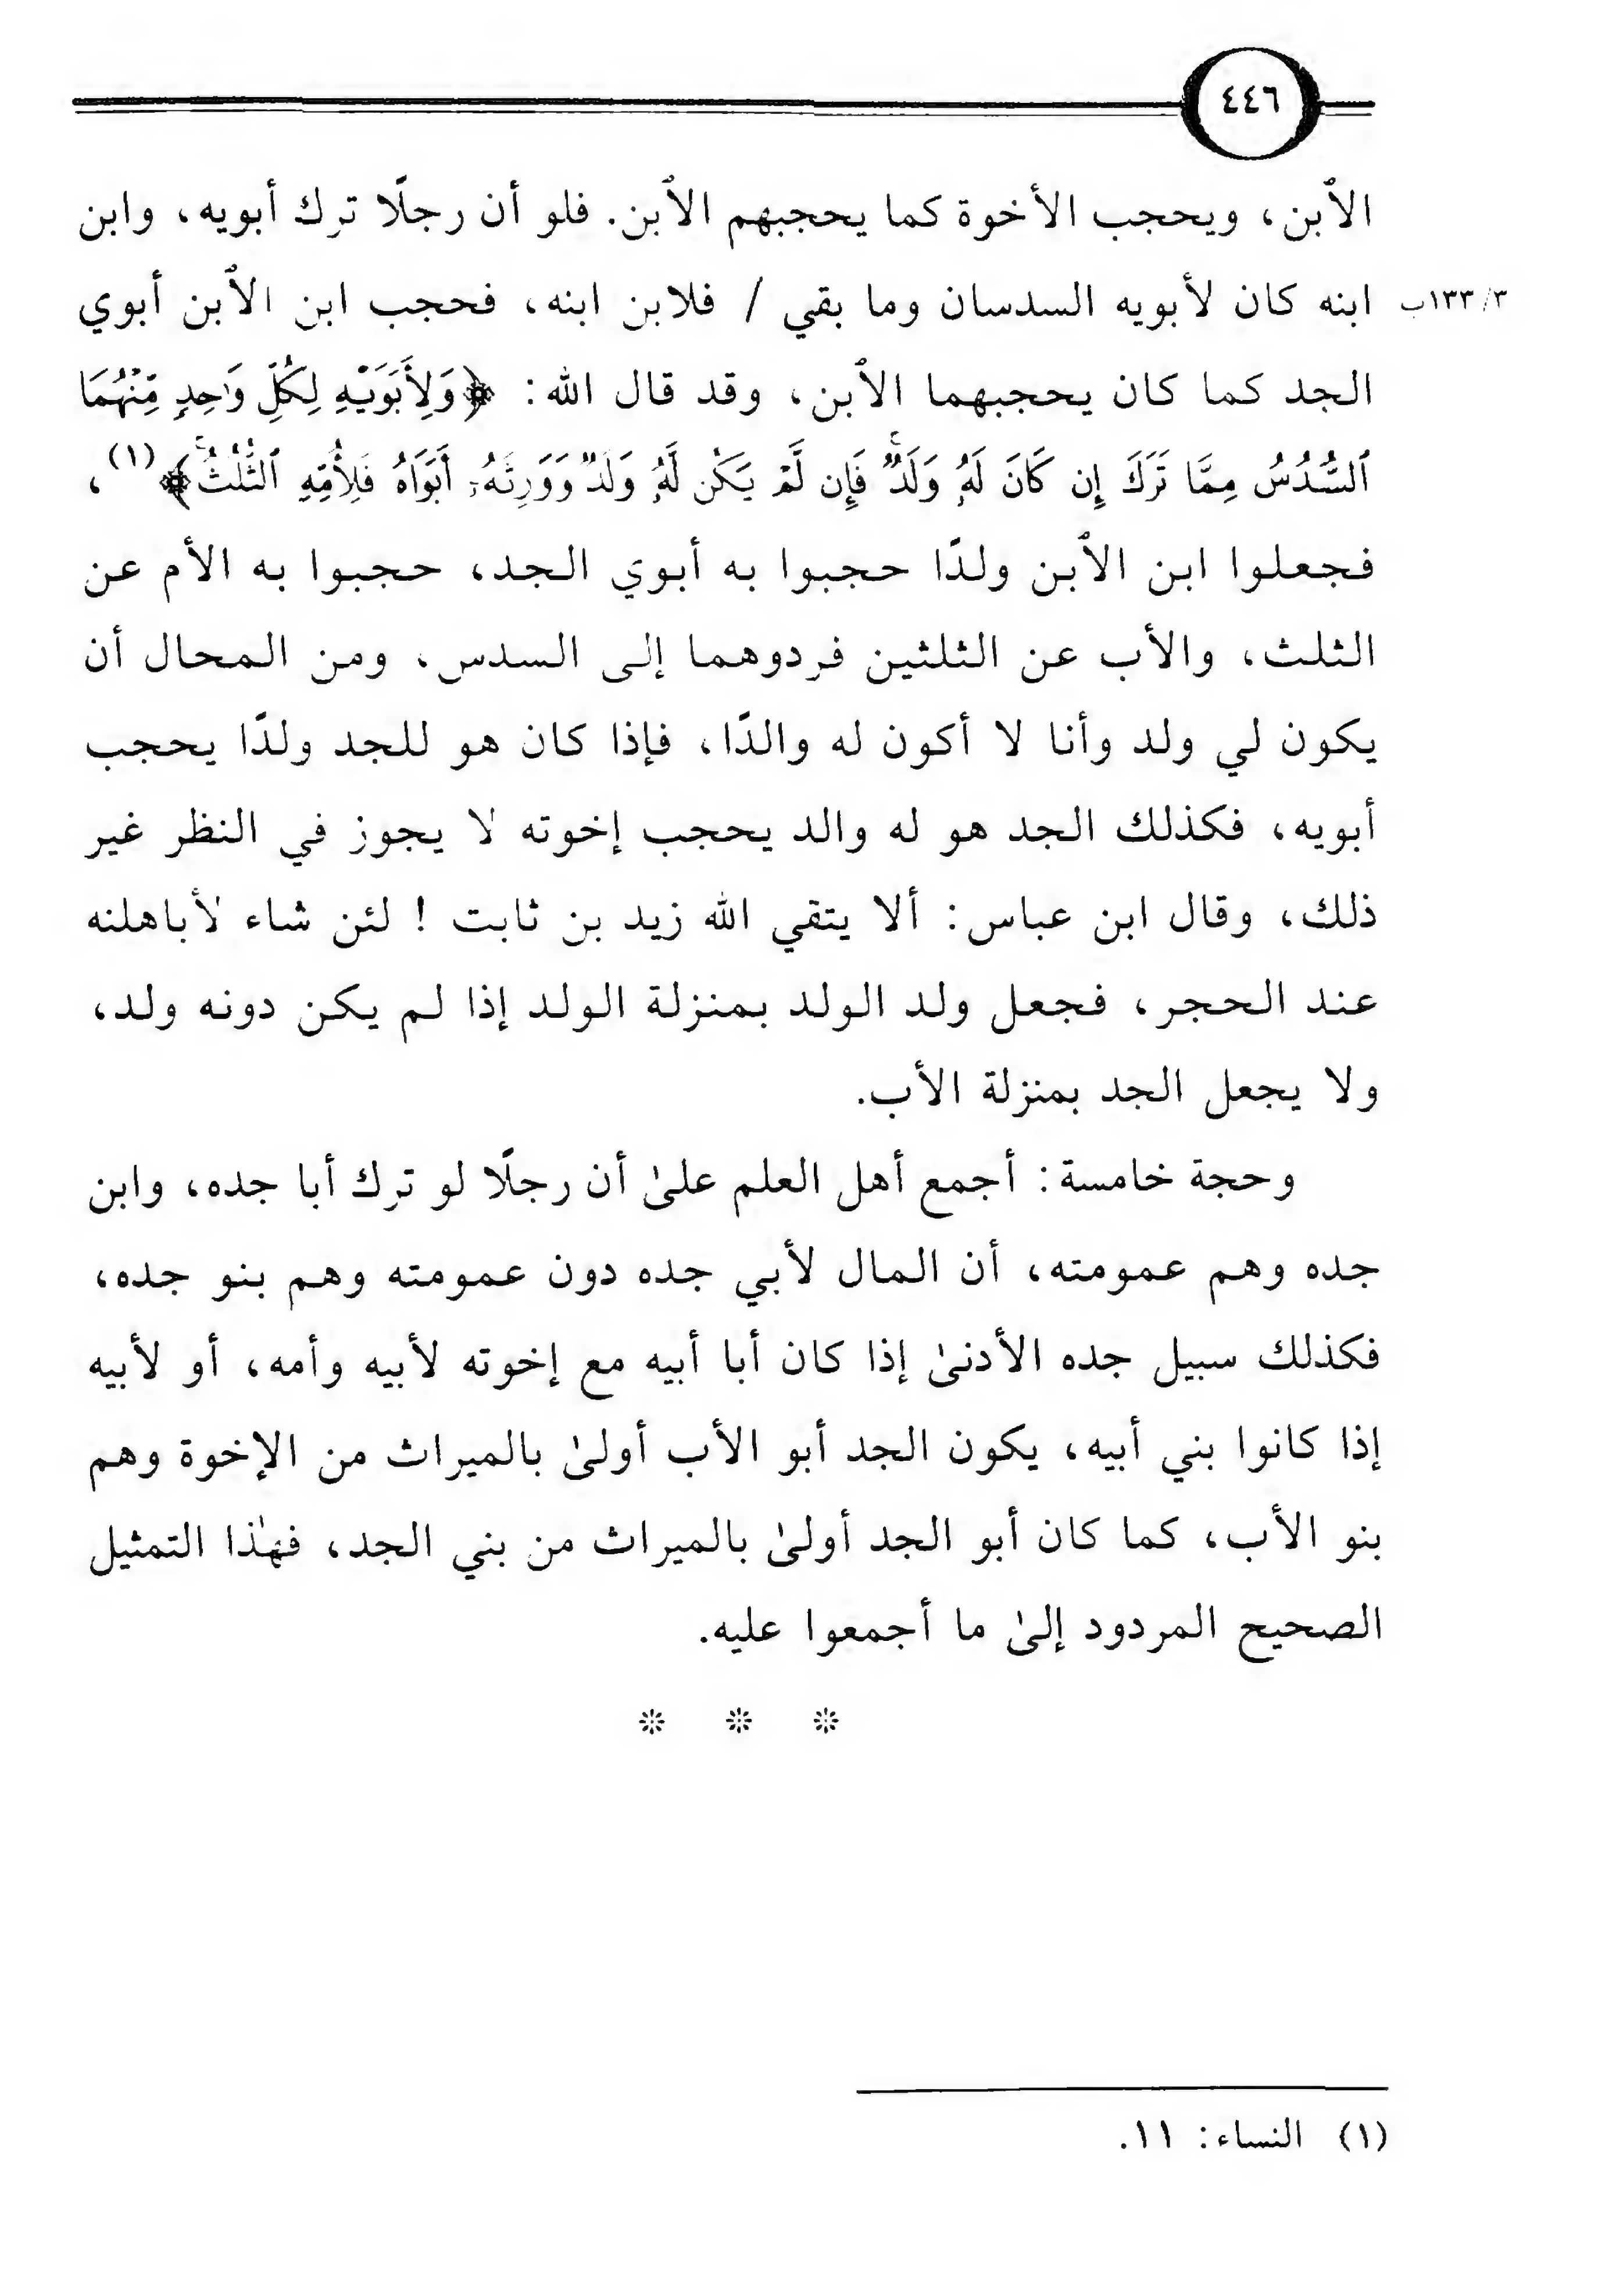 ٤٤٦
الٱبن، ويحجب الأخوة كما يحجبهم الٱبن. فلو أن رجلًا ترك أبويه، وابن
ابنه كان لأبويه السدسان وما بقي / فلابن ابنه، فحجب ابن الٱبن أبوي
٣/ ١٣٣ب
الجد كما كان يحجبهما الٱبن، وقد قال الله: ﴿وَلِأَبَوَيْهِ لِكُلِّ وَٰحِدٍ مِّنْهُمَا
ٱلسُّدُسُ مِمَّا تَرَكَ إِن كَانَ لَهُۥ وَلَدٌۚ فَإِن لَّمْ يَكُن لَّهُۥ وَلَدٌ وَوَرِثَهُۥٓ أَبَوَاهُ فَلِأُمِّهِ ٱلثُّلُثُۚ﴾(١)،
فجعلوا ابن الٱبن ولدًا حجبوا به أبوي الجد، حجبوا به الأم عن
الثلث، والأب عن الثلثين فردوهما إلى السدس، ومن المحال أن
يكون لي ولد وأنا لا أكون له والدًا، فإذا كان هو للجد ولدًا يحجب
أبويه، فكذلك الجد هو له والد يحجب إخوته لا يجوز في النظر غير
ذلك، وقال ابن عباس: ألا يتقي الله زيد بن ثابت ! لئن شاء لأباهلنه
عند الحجر، فجعل ولد الولد بمنزلة الولد إذا لم يكن دونه ولد،
ولا يجعل الجد بمنزلة الأب.
وحجة خامسة: أجمع أهل العلم علىٰ أن رجلًا لو ترك أبا جده، وابن
جده وهم عمومته، أن المال لأبي جده دون عمومته وهم بنو جده،
فكذلك سبيل جده الأدنىٰ إذا كان أبا أبيه مع إخوته لأبيه وأمه، أو لأبيه
إذا كانوا بني أبيه، يكون الجد أبو الأب أولىٰ بالميراث من الإخوة وهم
بنو الأب، كما كان أبو الجد أولىٰ بالميراث من بني الجد، فهٰذا التمثيل
الصحيح المردود إلىٰ ما أجمعوا عليه.
❊ ❊ ❊
(١) النساء: ١١.